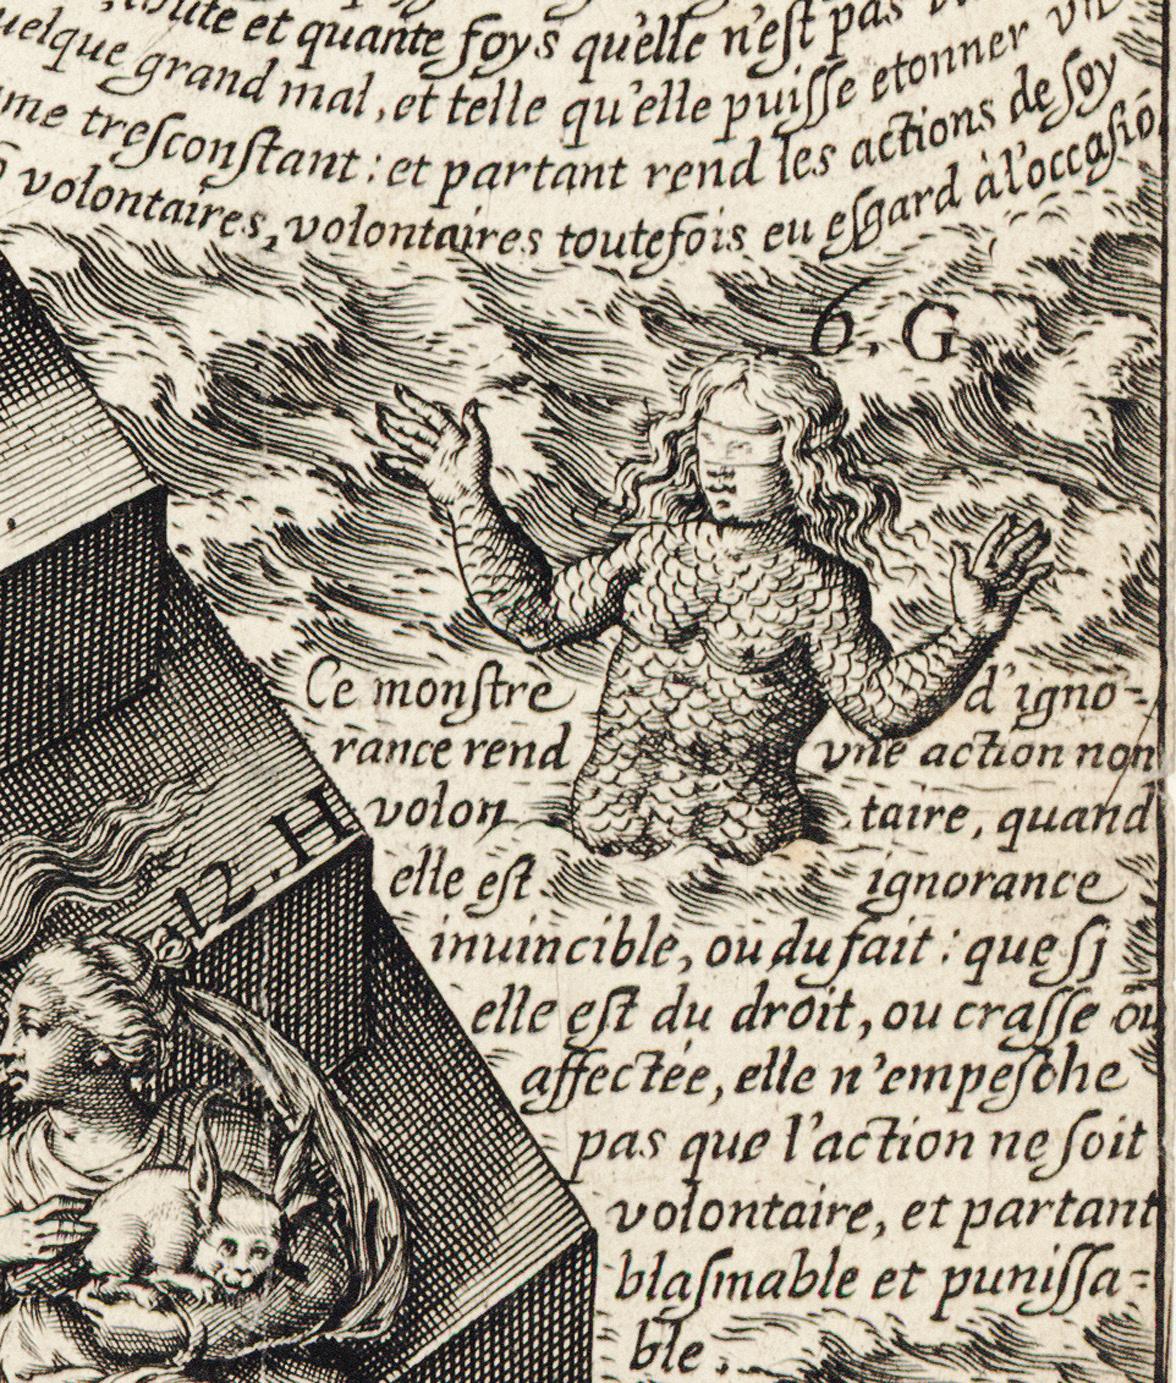 et quante foys qu'elle n'eſt pas
grand mal, et telle qu'elle puiſſe etonner vn
treſconſtant : et partant rend les actions de ſoy
volontaires, volontaires toutefois eu eſgard à l'occaſiõ
6. G
Ce monſtre d'igno-
rance rend vne action non
volon taire, quand
12. H
elle eſt ignorance
inuincible, ou du fait : que ſj
elle eſt du droit, ou craſſe ou
affectée, elle n'empeſche
pas que l'action ne ſoit
volontaire, et partant
blaſmable et puniſſa-
ble.